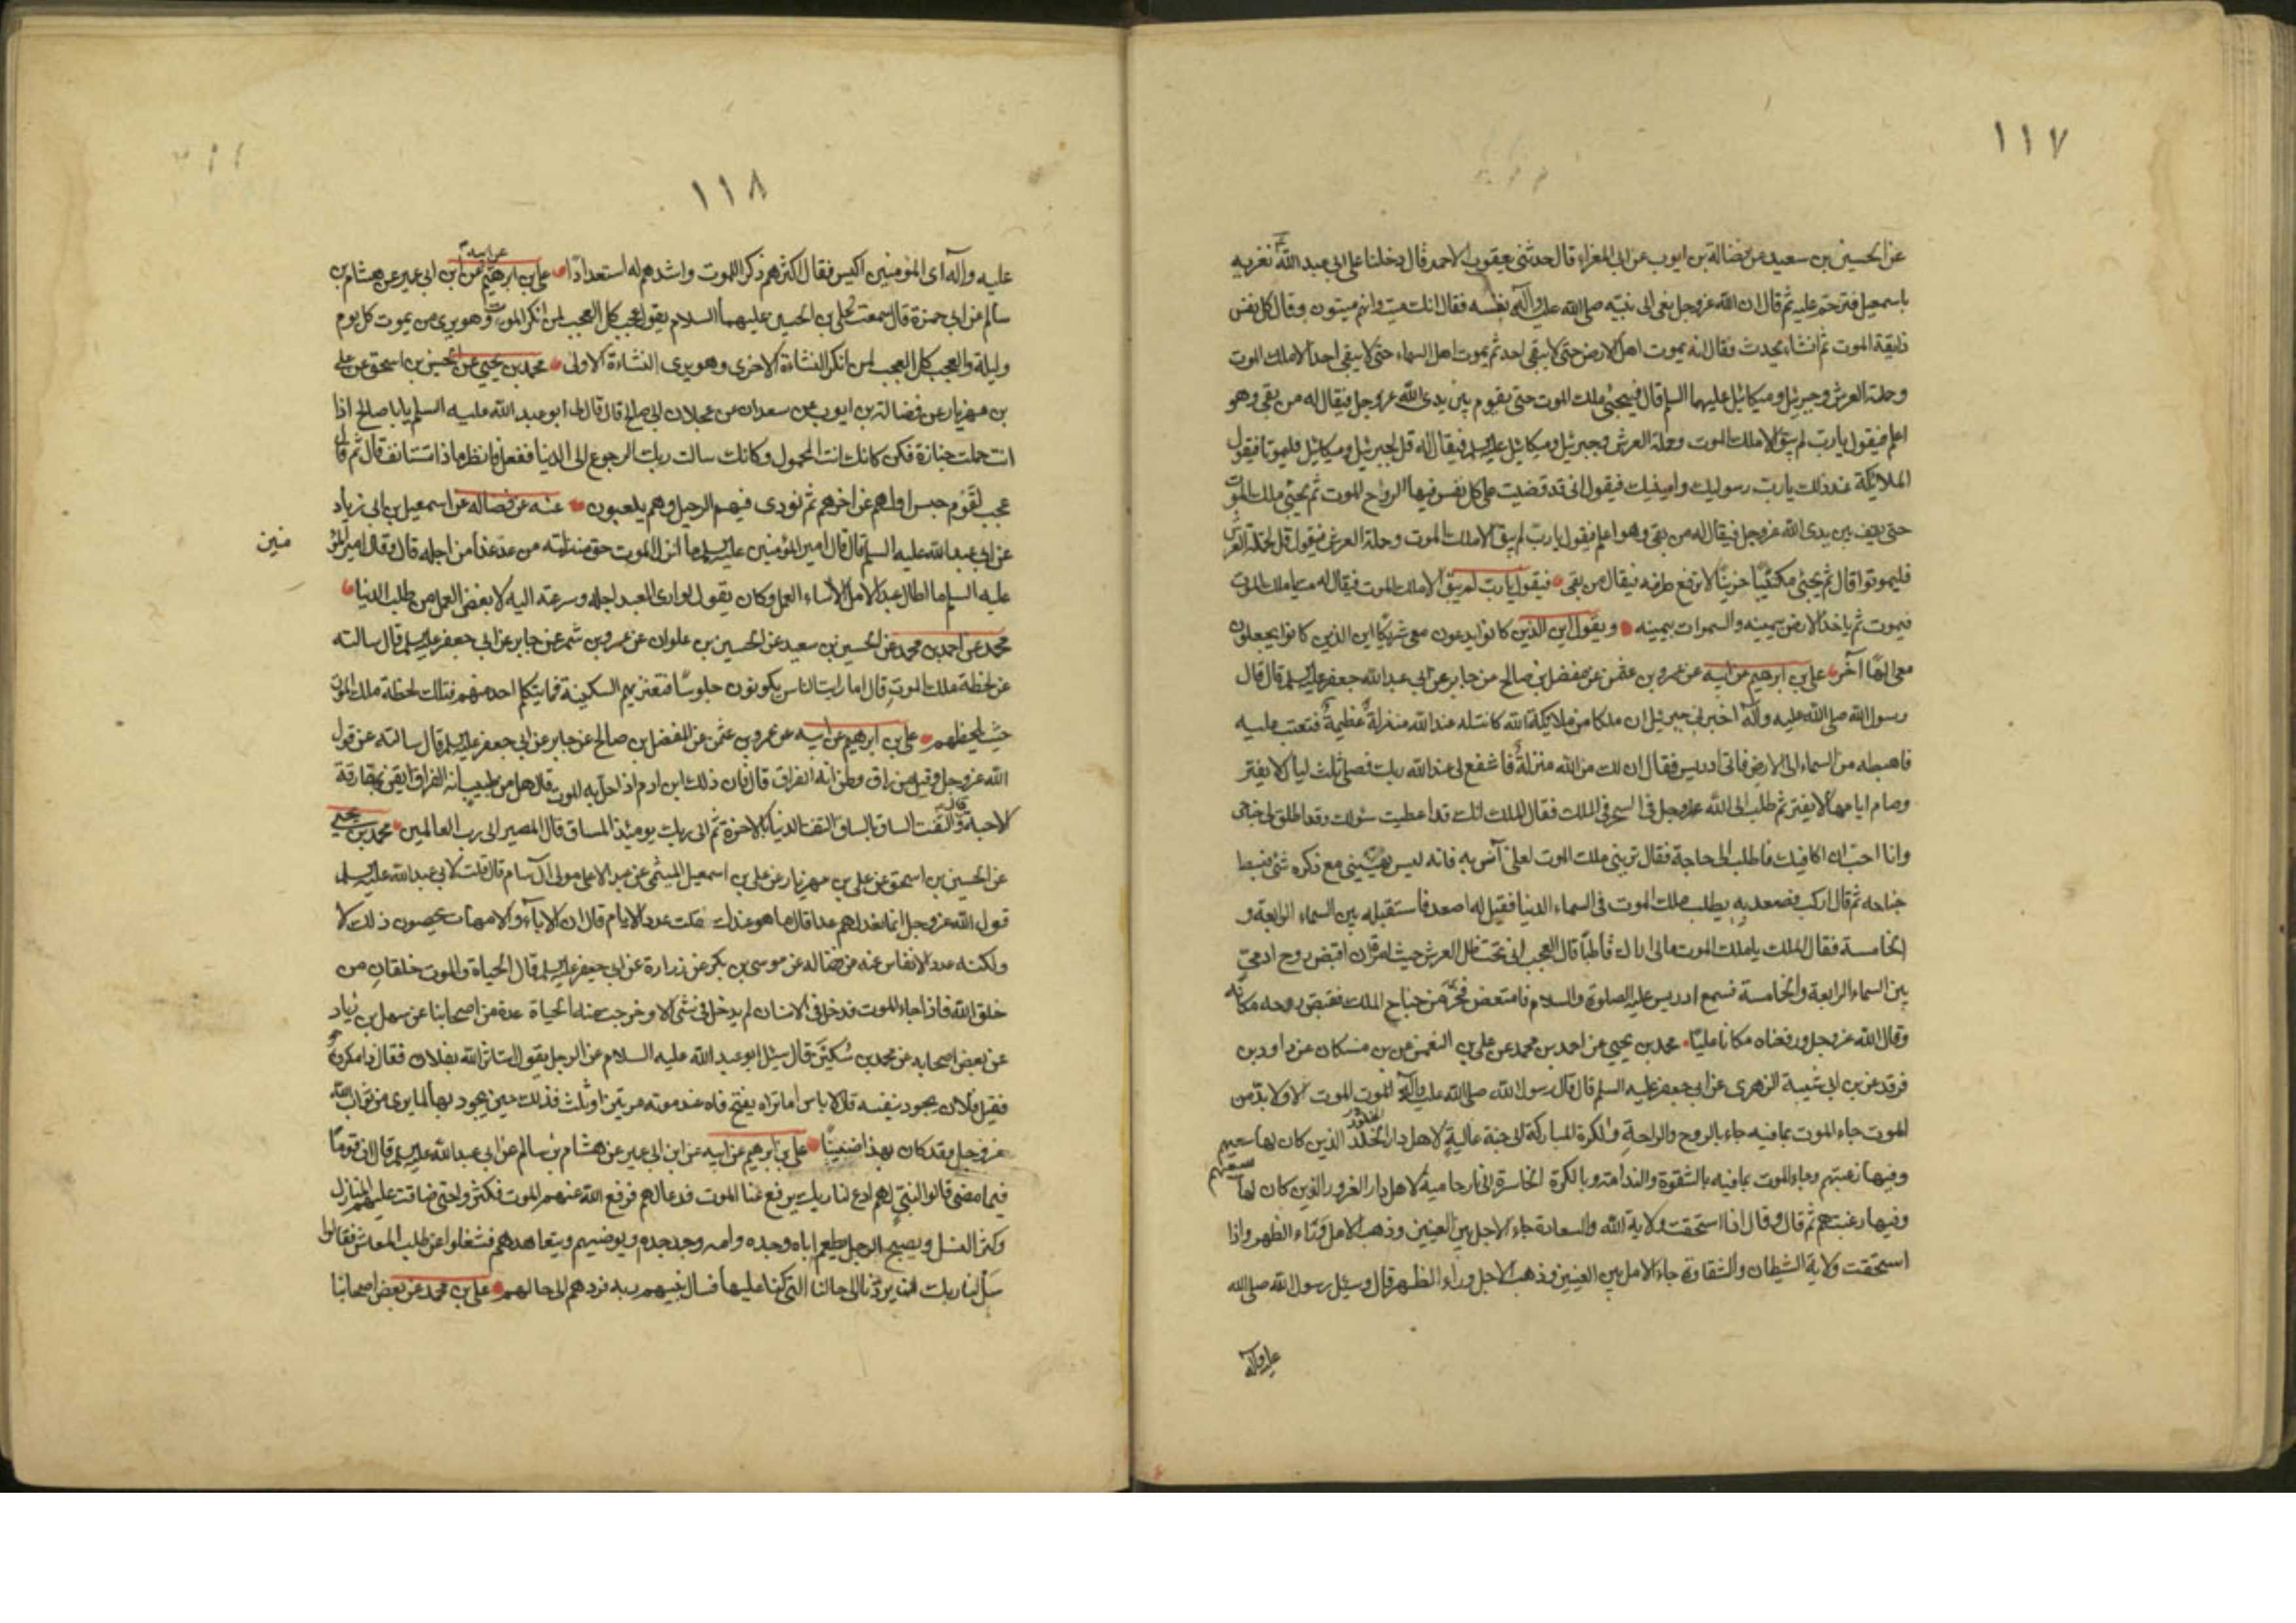 ١١٧
عن الحسين بن سعيد عن فضالة بن ايوب عن ابى المغرا قال حدثنى يعقوب الاحمر قال دخلنا على ابى عبد الله ع نعزيه
باسمعيل فترحم عليه ثم قال ان الله عز وجل نعى الى نبيه صلى الله عليه وآله نفسه فقال انك ميت وانهم ميتون وقال كل نفس
ذايقة الموت ثم انشاء يحدث فقال انه يموت اهل الارض حتى لا يبقى احد ثم يموت اهل السماء حتى لا يبقى احد الا ملك الموت
وحملة العرش وجبرئيل وميكائيل عليهما السلم قال فيجيئ ملك الموت حتى يقوم بين يدى الله عز وجل فيقال له من بقى وهو
اعلم فيقول يا رب لم يبق الا ملك الموت وحملة العرش وجبرئيل وميكائيل عليهما السلم فيقال له قل لجبرئيل وميكائيل فليموتا فيقول
الملائكة عند ذلك يا رب رسوليك وامينيك فيقول انى قد قضيت على كل نفس فيها الروح الموت ثم يجيئ ملك الموت
حتى يقف بين يدى الله عز وجل فيقال له من بقى وهو اعلم فيقول يا رب لم يبق الا ملك الموت وحملة العرش فيقول قل لحملة العرش
فليموتوا قال ثم يجيئ مكتئبا حزينا لا يرفع طرفه فيقال من بقى فيقول يا رب لم يبق الا ملك الموت فيقال له مت يا ملك الموت
فيموت ثم ياخذ الارض بيمينه والسموات بيمينه ويقول اين الذين كانوا يدعون معى شريكا اين الذين كانوا يجعلون
معى الها آخر على بن ابرهيم عن ابيه عن عمرو بن عثمن عن مفضل بن صالح عن جابر عن ابى عبد الله جعفر عليه السلم قال قال
رسول الله صلى الله عليه وآله اخبرنى جبرئيل ان ملكا من ملايكة الله كانت له عند الله منزلة عظيمة فتعتب عليه
فاهبطه من السماء الى الارض فاتى ادريس فقال ان لك من الله منزلة فاشفع لى عند الله ربك فصلى ثلث ليال لا يفتر
وصام ايامها لا يفتر ثم طلب الى الله عز وجل فى السحر فى الملك فقال الملك انك قد اعطيت سئولك وقد اطلق لى جناحى
وانا احب ان اكافيك فاطلب الى حاجة فقال ترينى ملك الموت لعلى آنس به فانه ليس يهنينى مع ذكره شئ فبسط
جناحه ثم قال اركب فصعد به يطلب ملك الموت فى السماء الدنيا فقيل له اصعد فاستقبله بين السماء الرابعة و
الخامسة فقال الملك يا ملك الموت مالى اراك قاطبا قال العجب انى تحت ظل العرش حيث امرت ان اقبض روح ادمى
بين السماء الرابعة والخامسة فسمع ادريس عليه الصلوة والسلام فامتعض فخر من جناح الملك فقبض روحه مكانه
وقال الله عز وجل ورفعناه مكانا عليا محمد بن يحيى عن احمد بن محمد عن على بن النعمن عن بن مسكان عن داود بن
فرقد عن بن ابى شيبة الزهرى عن ابى جعفر عليه السلم قال قال رسول الله صلى الله عليه وآله الموت الموت الا ولا بد من
الموت جاء الموت بما فيه جاء بالروح والراحة والكرة المباركة الى جنة عالية لاهل دار الخلد الخلود الذين كان لها سعيهم
وفيها رغبتهم وجاء الموت بما فيه بالشقوة والندامة وبالكرة الخاسرة الى نار حامية لاهل دار الغرور الذين كان لها سعيهم
وفيها رغبتهم ثم قال وقال اذا استحقت ولاية الله والسعادة جاء الاجل بين العينين وذهب الامل وراء الظهر واذا
استحقت ولاية الشيطان والشقاوة جاء الامل بين العينين وذهب الاجل وراء الظهر قال وسئل رسول الله صلى الله
عليه وآله
١١٨
عليه وآله اى المؤمنين اكيس فقال اكثرهم ذكرا للموت واشدهم له استعدادا على بن ابرهيم عن ابيه عن ابن ابى عمير عن هشام بن
سالم عن ابى حمزة قال سمعت على بن الحسين عليهما السلام يقول عجب كل العجب لمن انكر الموت وهو يرى من يموت كل يوم
وليلة والعجب كل العجب لمن انكر النشاءة الاخرى وهو يرى النشاءة الاولى محمد بن يحيى عن الحسين بن اسحق عن على
بن مهزيار عن فضالة بن ايوب عن سعدان عن عجلان ابى صالح قال قال لى ابو عبد الله عليه السلم يا با صالح اذا
انت حملت جنازة فكن كانك انت المحمول وكانك سالت ربك الرجوع الى الدنيا ففعل فانظر ماذا تستانف قال ثم قال
عجب لقوم حبس اولهم عن اخرهم ثم نودى فيهم الرحيل وهم يلعبون عنه عن فضالة عن اسمعيل بن ابى زياد
عن ابى عبد الله عليه السلم قال قال امير المؤمنين عليه السلم ما انزل الموت حق منزلته من عد غدا من اجله قال وقال امير المؤ
منين
عليه السلم ما اطال عبد الامل الا اساء العمل وكان يقول لو راى العبد اجله وسرعته اليه لابغض العمل من طلب الدنيا
محمد عن احمد بن محمد عن الحسين بن سعيد عن الحسين بن علوان عن عمرو بن شمر عن جابر عن ابى جعفر عليه السلم قال سالته
عن لحظة ملك الموت قال اما رايت الناس يكونون جلوسا فتعتريهم السكينة فما يتكلم احد منهم فتلك لحظة ملك الموت
حيث يلحظهم على بن ابرهيم عن ابيه عن عمرو بن عثمن عن المفضل بن صالح عن جابر عن ابى جعفر عليه السلم قال سالته عن قول
الله عز وجل وقيل من راق وظن انه الفراق قال فان ذلك ابن ادم اذا حل به الموت قال هل من طبيب انه الفراق ايقن بمفارقة
الاحبة قال والتفت الساق بالساق التفت الدنيا بالاخرة ثم الى ربك يومئذ المساق قال المصير الى رب العالمين محمد بن يحيى
عن الحسين بن اسحق عن على بن مهزيار عن على بن اسمعيل الميثمى عن عبد الاعلى مولى آل سام قال قلت لابى عبد الله عليه السلم
قول الله عز وجل انما نعد لهم عدا قال ما هو عندك قلت عدد الايام قال ان الاباء والامهات يحصون ذلك لا
ولكنه عدد الانفاس عنه عن فضالة عن موسى بن بكر عن زرارة عن ابى جعفر عليه السلم قال الحياة والموت خلقان من
خلق الله فاذا جاء الموت فدخل فى الانسان لم يدخل فى شئ الا وخرجت منه الحياة عدة من اصحابنا عن سهل بن زياد
عن بعض اصحابه عن محمد بن سكين قال سئل ابو عبد الله عليه السلام عن الرجل يقول استاثر الله بفلان فقال ذا مكروه
فقيل فلان يجود بنفسه قال لا باس اما تراه يفتح فاه عند موته مرتين او ثلث فذلك حين يجود بها لما يرى من ثواب الله
عز وجل وقد كان بهذا ضنينا على بن ابرهيم عن ابيه عن ابن ابى عمير عن هشام بن سالم عن ابى عبد الله عليه السلم قال ان قوما
فيما مضى قالوا لنبى لهم ادع لنا ربك يرفع عنا الموت فدعا لهم فرفع الله عنهم الموت فكثروا حتى ضاقت عليهم المنازل
وكثر النسل ويصبح الرجل يطعم اباه وجده وامه وجد جده ويوضيهم ويتعاهدهم فشغلوا عن طلب المعاش فقالوا
سل لنا ربك ان يردنا الى حالنا التى كنا عليها فسال نبيهم ربه فردهم الى حالهم على بن محمد عن بعض اصحابنا